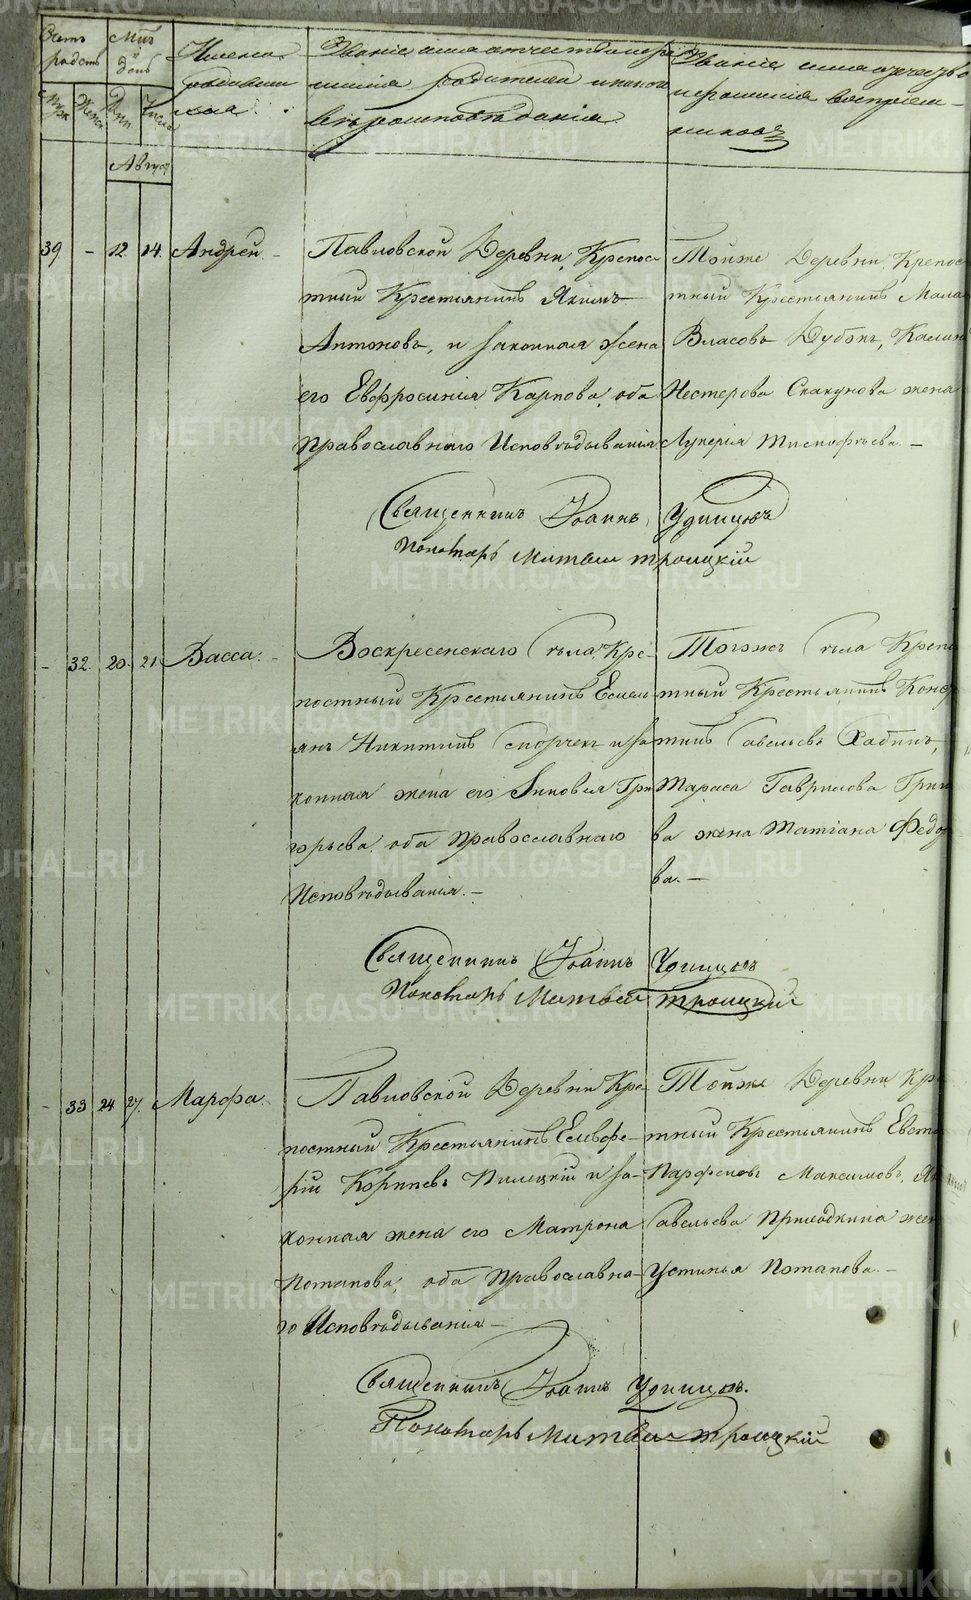 Счетъ родив. Мць и день
Муж. Женс. Дни Числа
Имена родившихся.
Званіе имя отчество и фамилія родителей и какой вѣроисповѣданія
Званіе имя отчество и фамилія воспріемниковъ
Август
39 - 12. 14. Андрей -
Павловской Деревни, Крепос
тный Крестьянинъ Якимъ
Антоновъ, и законная жена
его Евфросинія Карпова, оба
Православнаго Исповѣдыванія
Тойже Деревни Крепос
тный Крестьянинъ
Власовъ Дубокъ, Калина
Нестерова Скакунова жена
Лукерія Тимофѣева. -
Священникъ Іоаннъ Удинцовъ
Пономарь Матвѣй Троицкій
- 32. 20. 21. Васса. -
Воскресенскаго села, Кре-
постный Крестьянинъ Емель
янъ Никитинъ и за
конная жена его Зиновья Гри
горьева, оба Православнаго
Исповѣдыванія. -
Тогожъ села Крепо
тный Крестьянинъ
тинъ Савельевъ
Тараса Гаврилова
ва жена Татіана Федо
ва. -
Священникъ Іоаннъ Удинцовъ
Пономарь Матвѣй Троицкій
- 33 24 27. Марфа. -
Павловской Деревни Кре
постный Крестьянинъ Елевфе-
рій Корнневъ и за-
конная жена его Матрона
Потапова, оба Православна-
го Исповѣдыванія -
Тойже Деревни Кре
тный Крестьянинъ
Парфеновъ Максимовъ,
Савельева жен
Устинья Потапова. -
Священникъ Іоаннъ Удинцовъ.
Пономарь Матвѣй Троицкій
METRIKI.GASO-URAL.RU